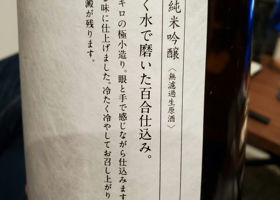 純米吟醸〈無濾過生原酒〉
く水で磨いた百合仕込み。
キロの極小造り。眼と手で感じながら仕込みます
な味に仕上げました。冷たく冷やしてお召し上がり
澱が残ります。